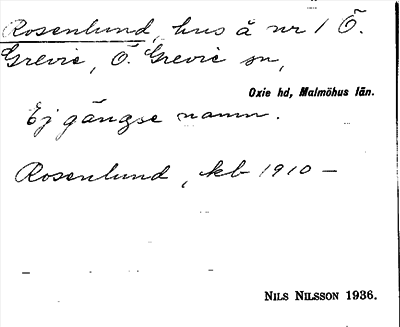 Rosenlund, hus å nr 1 Ö.
Grevie, Ö. Grevie sn,
Oxie hd, Malmöhus län.
Ej gängse namn.
Rosenlund, kb 1910 –
NILS NILSSON 1936.